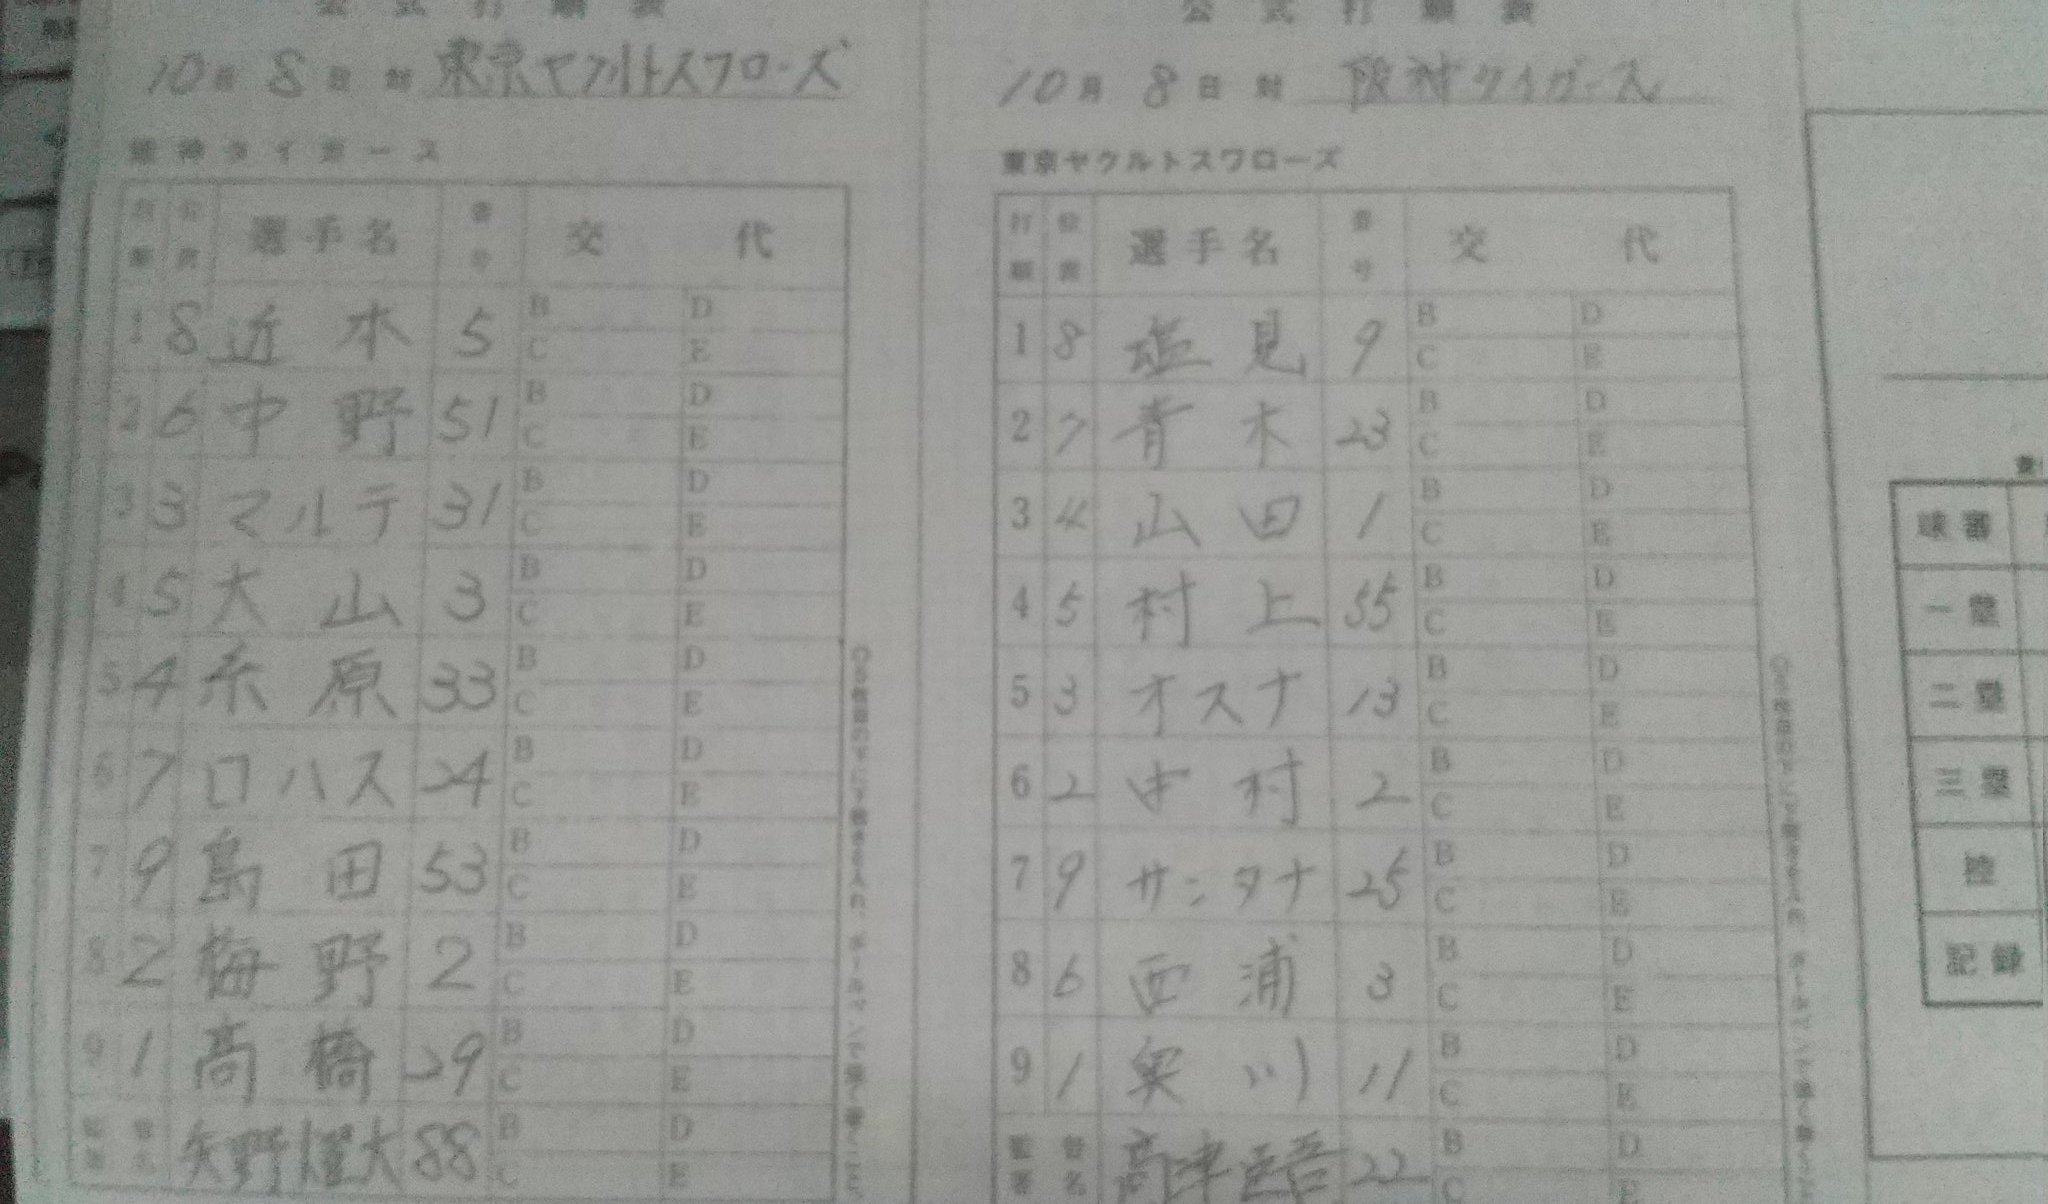 公式打順表
10月8日 対 東京ヤクルトスワローズ
阪神タイガース
打順 位置 選手名 番号 交代
1 8 近本 5 B D
C E
2 6 中野 51 B D
C E
3 3 マルテ 31 B D
C E
4 5 大山 3 B D
C E
5 4 糸原 33 B D
C E
6 7 ロハス 24 B D
C E
7 9 島田 53 B D
C E
8 2 梅野 2 B D
C E
9 1 高橋 29 B D
C E
監督 署名 矢野燿大 88 B D
C E
公式打順表
10月8日 対 阪神タイガース
東京ヤクルトスワローズ
打順 位置 選手名 番号 交代
1 8 塩見 9 B D
C E
2 7 青木 23 B D
C E
3 4 山田 1 B D
C E
4 5 村上 55 B D
C E
5 3 オスナ 13 B D
C E
6 2 中村 2 B D
C E
7 9 サンタナ 25 B D
C E
8 6 西浦 3 B D
C E
9 1 奥川 11 B D
C E
監督 署名 高津臣吾 22 B D
C E
球審
一塁
二塁
三塁
控
記録